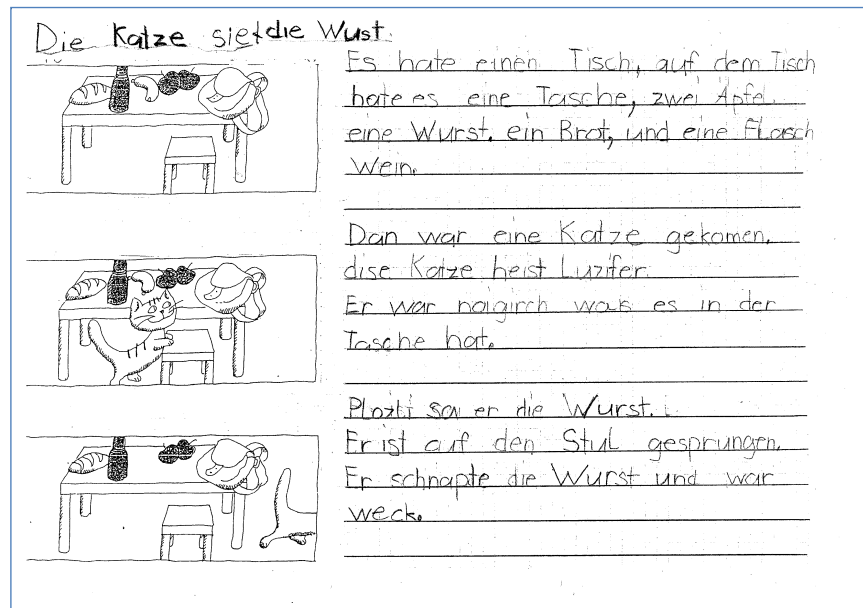 Die Katze siet die Wust.
Es hate einen Tisch, auf dem Tisch
hate es eine Tasche, zwei Äpfel
eine Wurst. ein Brot, und eine Flasch
Wein.
Dan war eine Katze gekomen.
dise Katze heist Luzifer.
Er war naigirch was es in der
Tasche hat.
Plozli sa er die Wurst.
Er ist auf den Stul gesprungen.
Er schnapte die Wurst und war
weck.